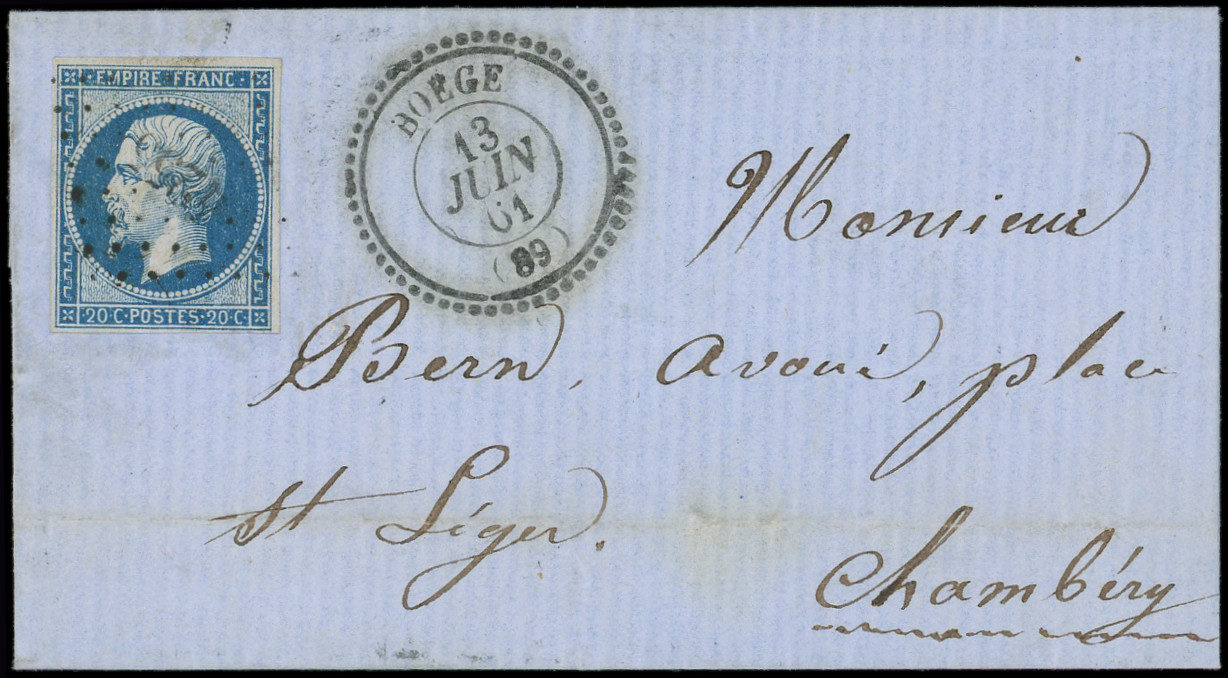 EMPIRE FRANC
BOËGE
13
JUIN
61
(89)
20 C · POSTES · 20 C
Monsieur
Bern, avoué, place
St Léger.
Chambéry